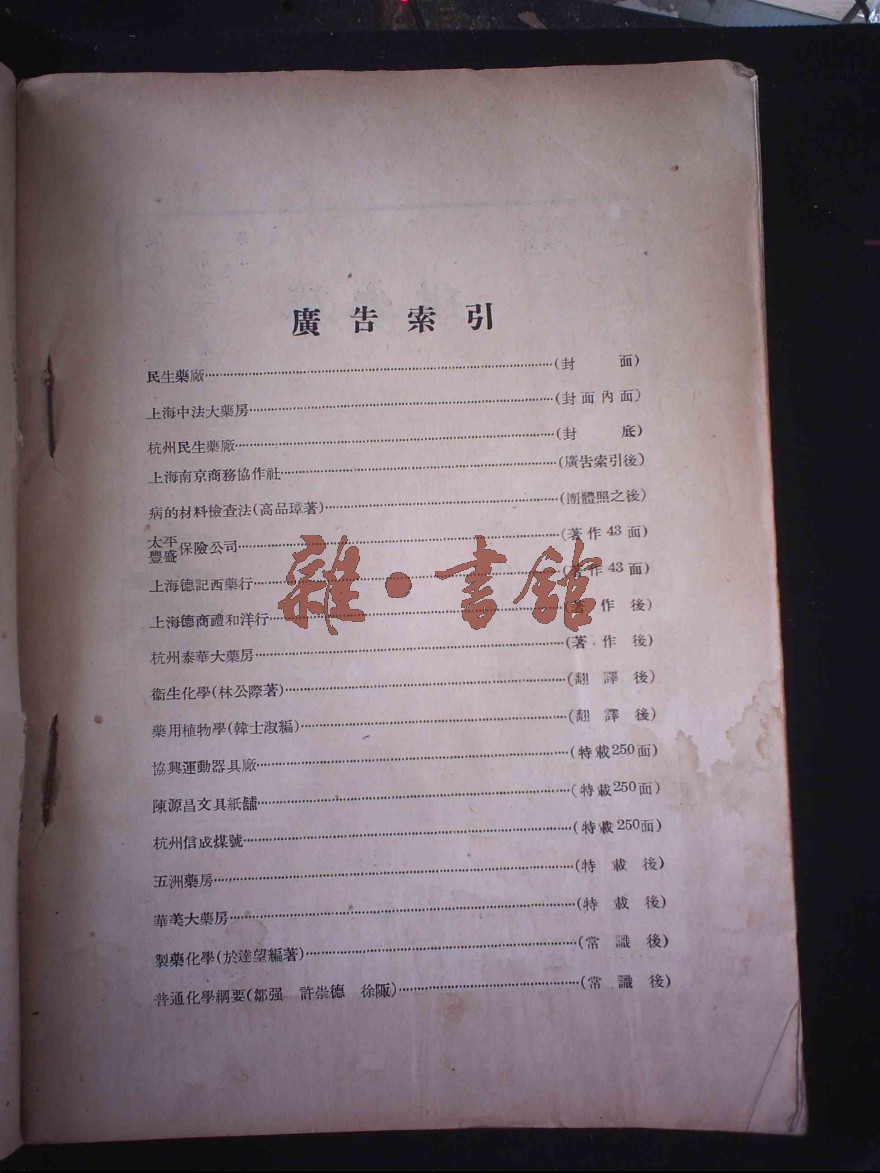 廣告索引
民生藥廠……(封　面)
上海中法大藥房……(封面內面)
杭州民生藥廠……(封　底)
上海南京商務協作社……(廣告索引後)
病的材料檢查法(高品璋著)……(團體照之後)
太平豐盛保險公司……(著作43面)
上海德記西藥行……(著作43面)
上海德商禮和洋行……(著作後)
杭州泰華大藥房……(著作後)
衞生化學(林公際著)……(翻譯後)
藥用植物學(韓士淑編)……(翻譯後)
協興運動器具廠……(特載250面)
陳源昌文具紙舖……(特載250面)
杭州信成煤號……(特載250面)
五洲藥房……(特載後)
華美大藥房……(特載後)
製藥化學(於達望編著)……(常識後)
普通化學綱要(鄒强　許崇德　徐陬)……(常識後)
雜·書館